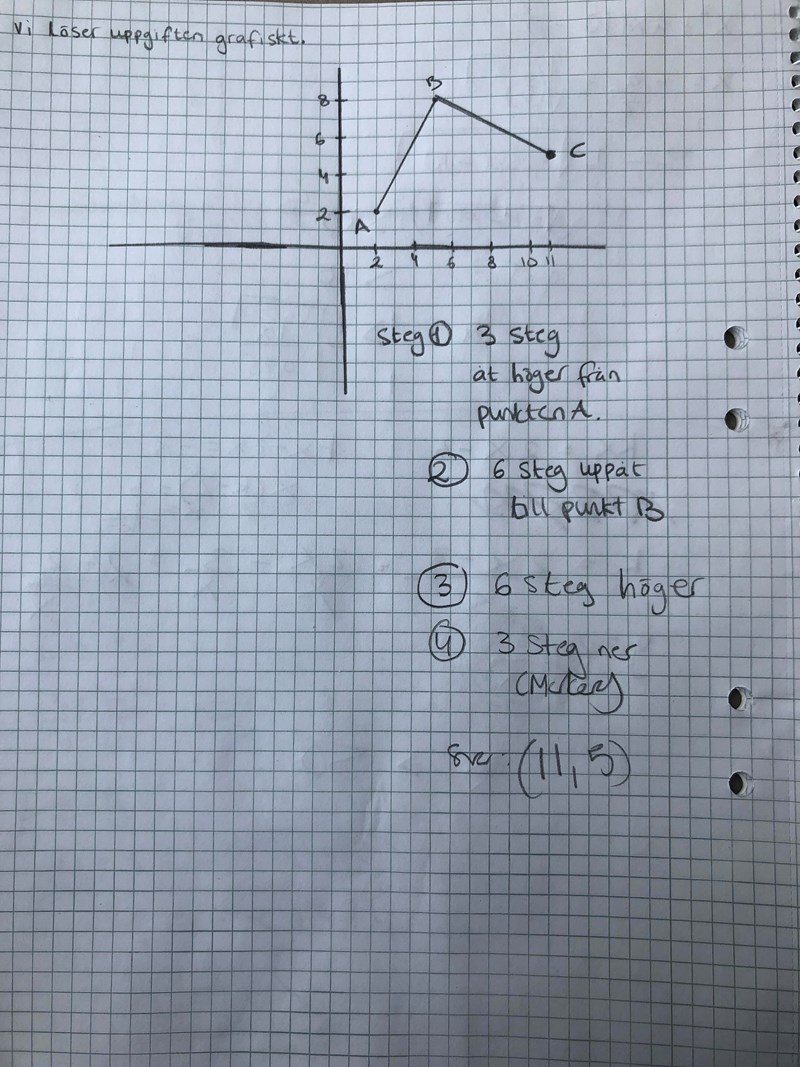 Vi Löser uppgiften grafiskt.
B
8
6
C
4
2
A
2 4 6 8 10 11
Steg ① 3 steg
åt höger från
punkten A.
② 6 steg uppåt
till punkt B
③ 6 steg höger
④ 3 steg ner
Svar: (11,5)